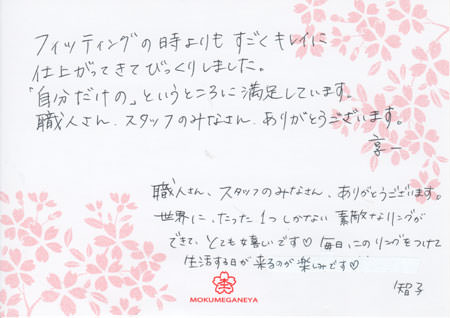 フィッティングの時よりもすごくキレイに
仕上がってきてびっくりしました。
「自分だけの」というところに満足しています。
職人さん、スタッフのみなさん、ありがとうございます。
享一
職人さん、スタッフのみなさん、ありがとうございます。
世界に、たった1つしかない素敵なリングが
できて、とても嬉しいです♡ 毎日、このリングをつけて
生活する日が来るのが楽しみです♡
智子
MOKUMEGANEYA